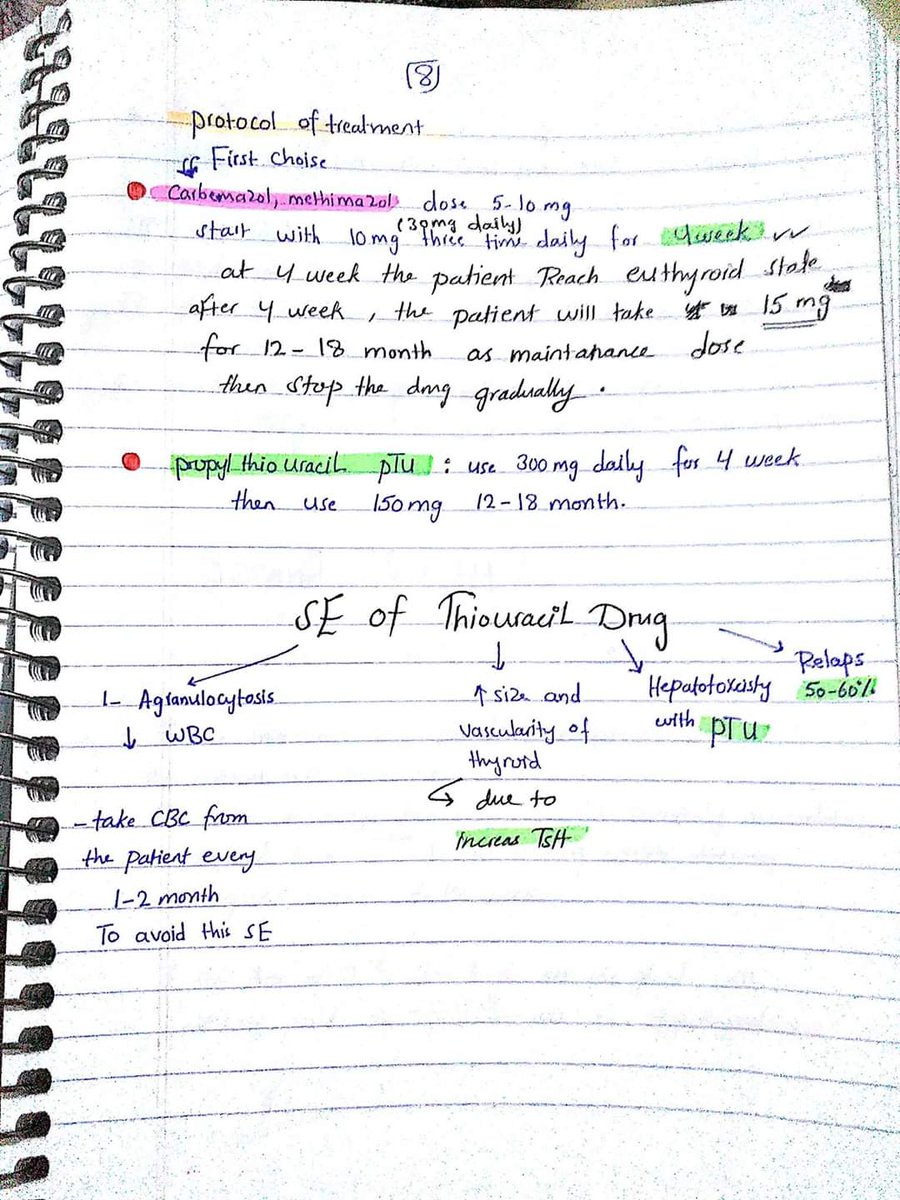 8
protocol of treatment
First choise
Carbemazol, methimazol dose 5-10 mg
(30mg daily)
start with 10mg three time daily for 4week ✓✓
at 4 week the patient Reach euthyroid state
after 4 week, the patient will take 15 mg
for 12-18 month as maintanance dose
then stop the drug gradually.
propylthiouracil PTU : use 300mg daily for 4 week
then use 150mg 12-18 month.
SE of Thiouracil Drug
1- Agranulocytosis
↓ WBC
- take CBC from
the patient every
1-2 month
To avoid this SE
↑ size and
vascularity of
thyroid
due to
increas TSH
Hepatotoxcisty
with PTU
Relaps
50-60%